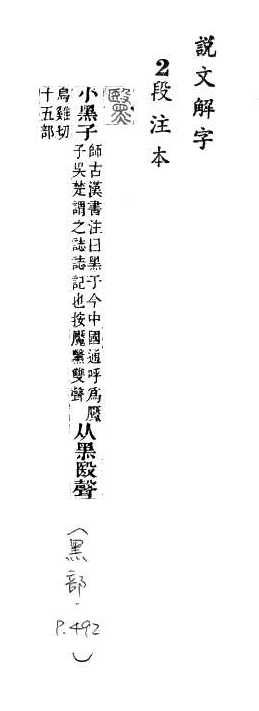 說文解字
2段注本
黳
小黑子
師古漢書注曰黑子今中國通呼爲黶
子吳楚謂之誌誌記也按黶黳雙聲
从黑殹聲
烏雞切
十五部
(黑部.P.492)